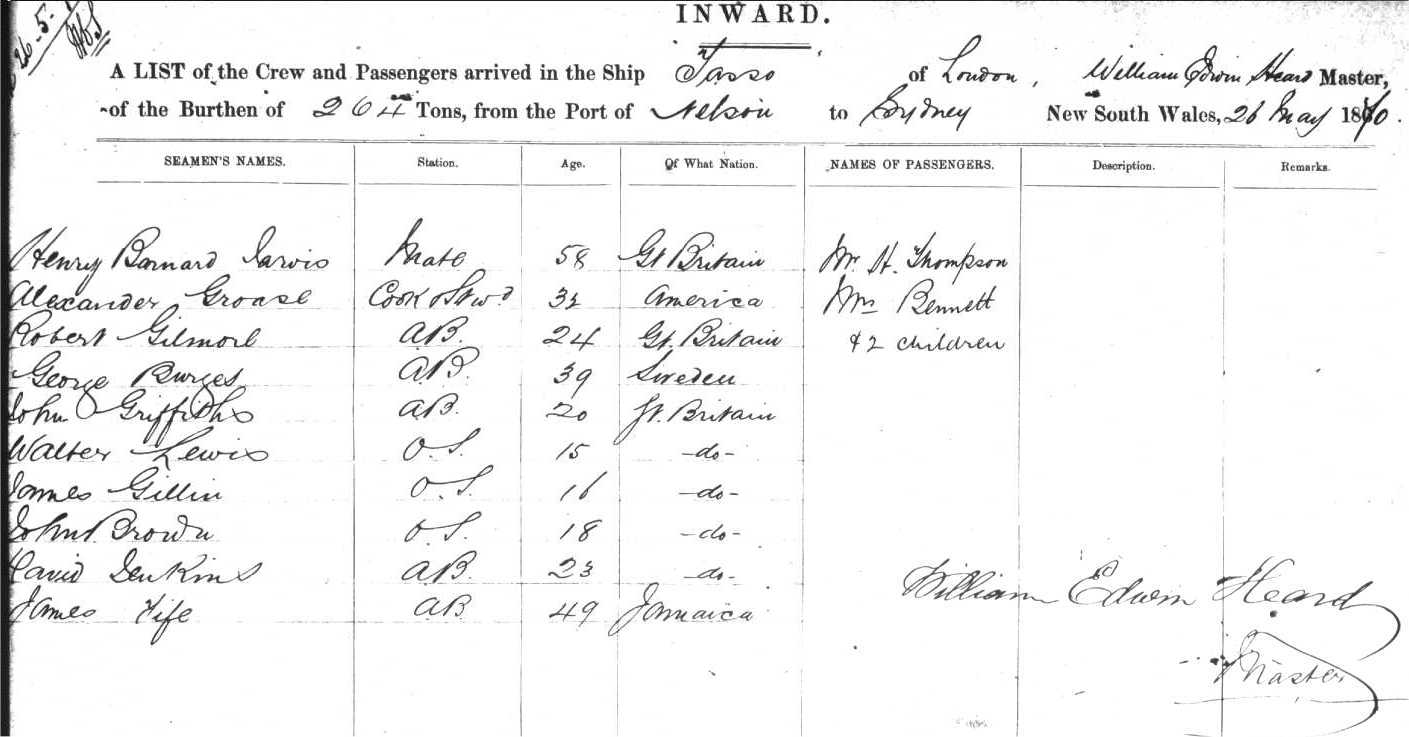 26-5-
INWARD.
A LIST of the Crew and Passengers arrived in the Ship Tasso of London, William Edwin Heard Master,
of the Burthen of 264 Tons, from the Port of Nelson to Sydney New South Wales, 26 May 1870.
SEAMEN'S NAMES. Station. Age. Of What Nation. NAMES OF PASSENGERS. Description. Remarks.
Henry Barnard Jarvis Mate 58 Gt Britain Mr H. Thompson
Alexander Groase Cook & Stwd 32 America Mrs Bennett
Robert Gilmore A.B. 24 Gt. Britain & 2 children
George Burges A.B. 39 Sweden
John Griffiths A.B. 20 Gt. Britain
Walter Lewis O.S. 15 -do-
James Gillin O.S. 16 -do-
John Brown O.S. 18 -do-
David Jenkins A.B. 23 -do-
James Fife A.B 49 Jamaica
William Edwin Heard
Master